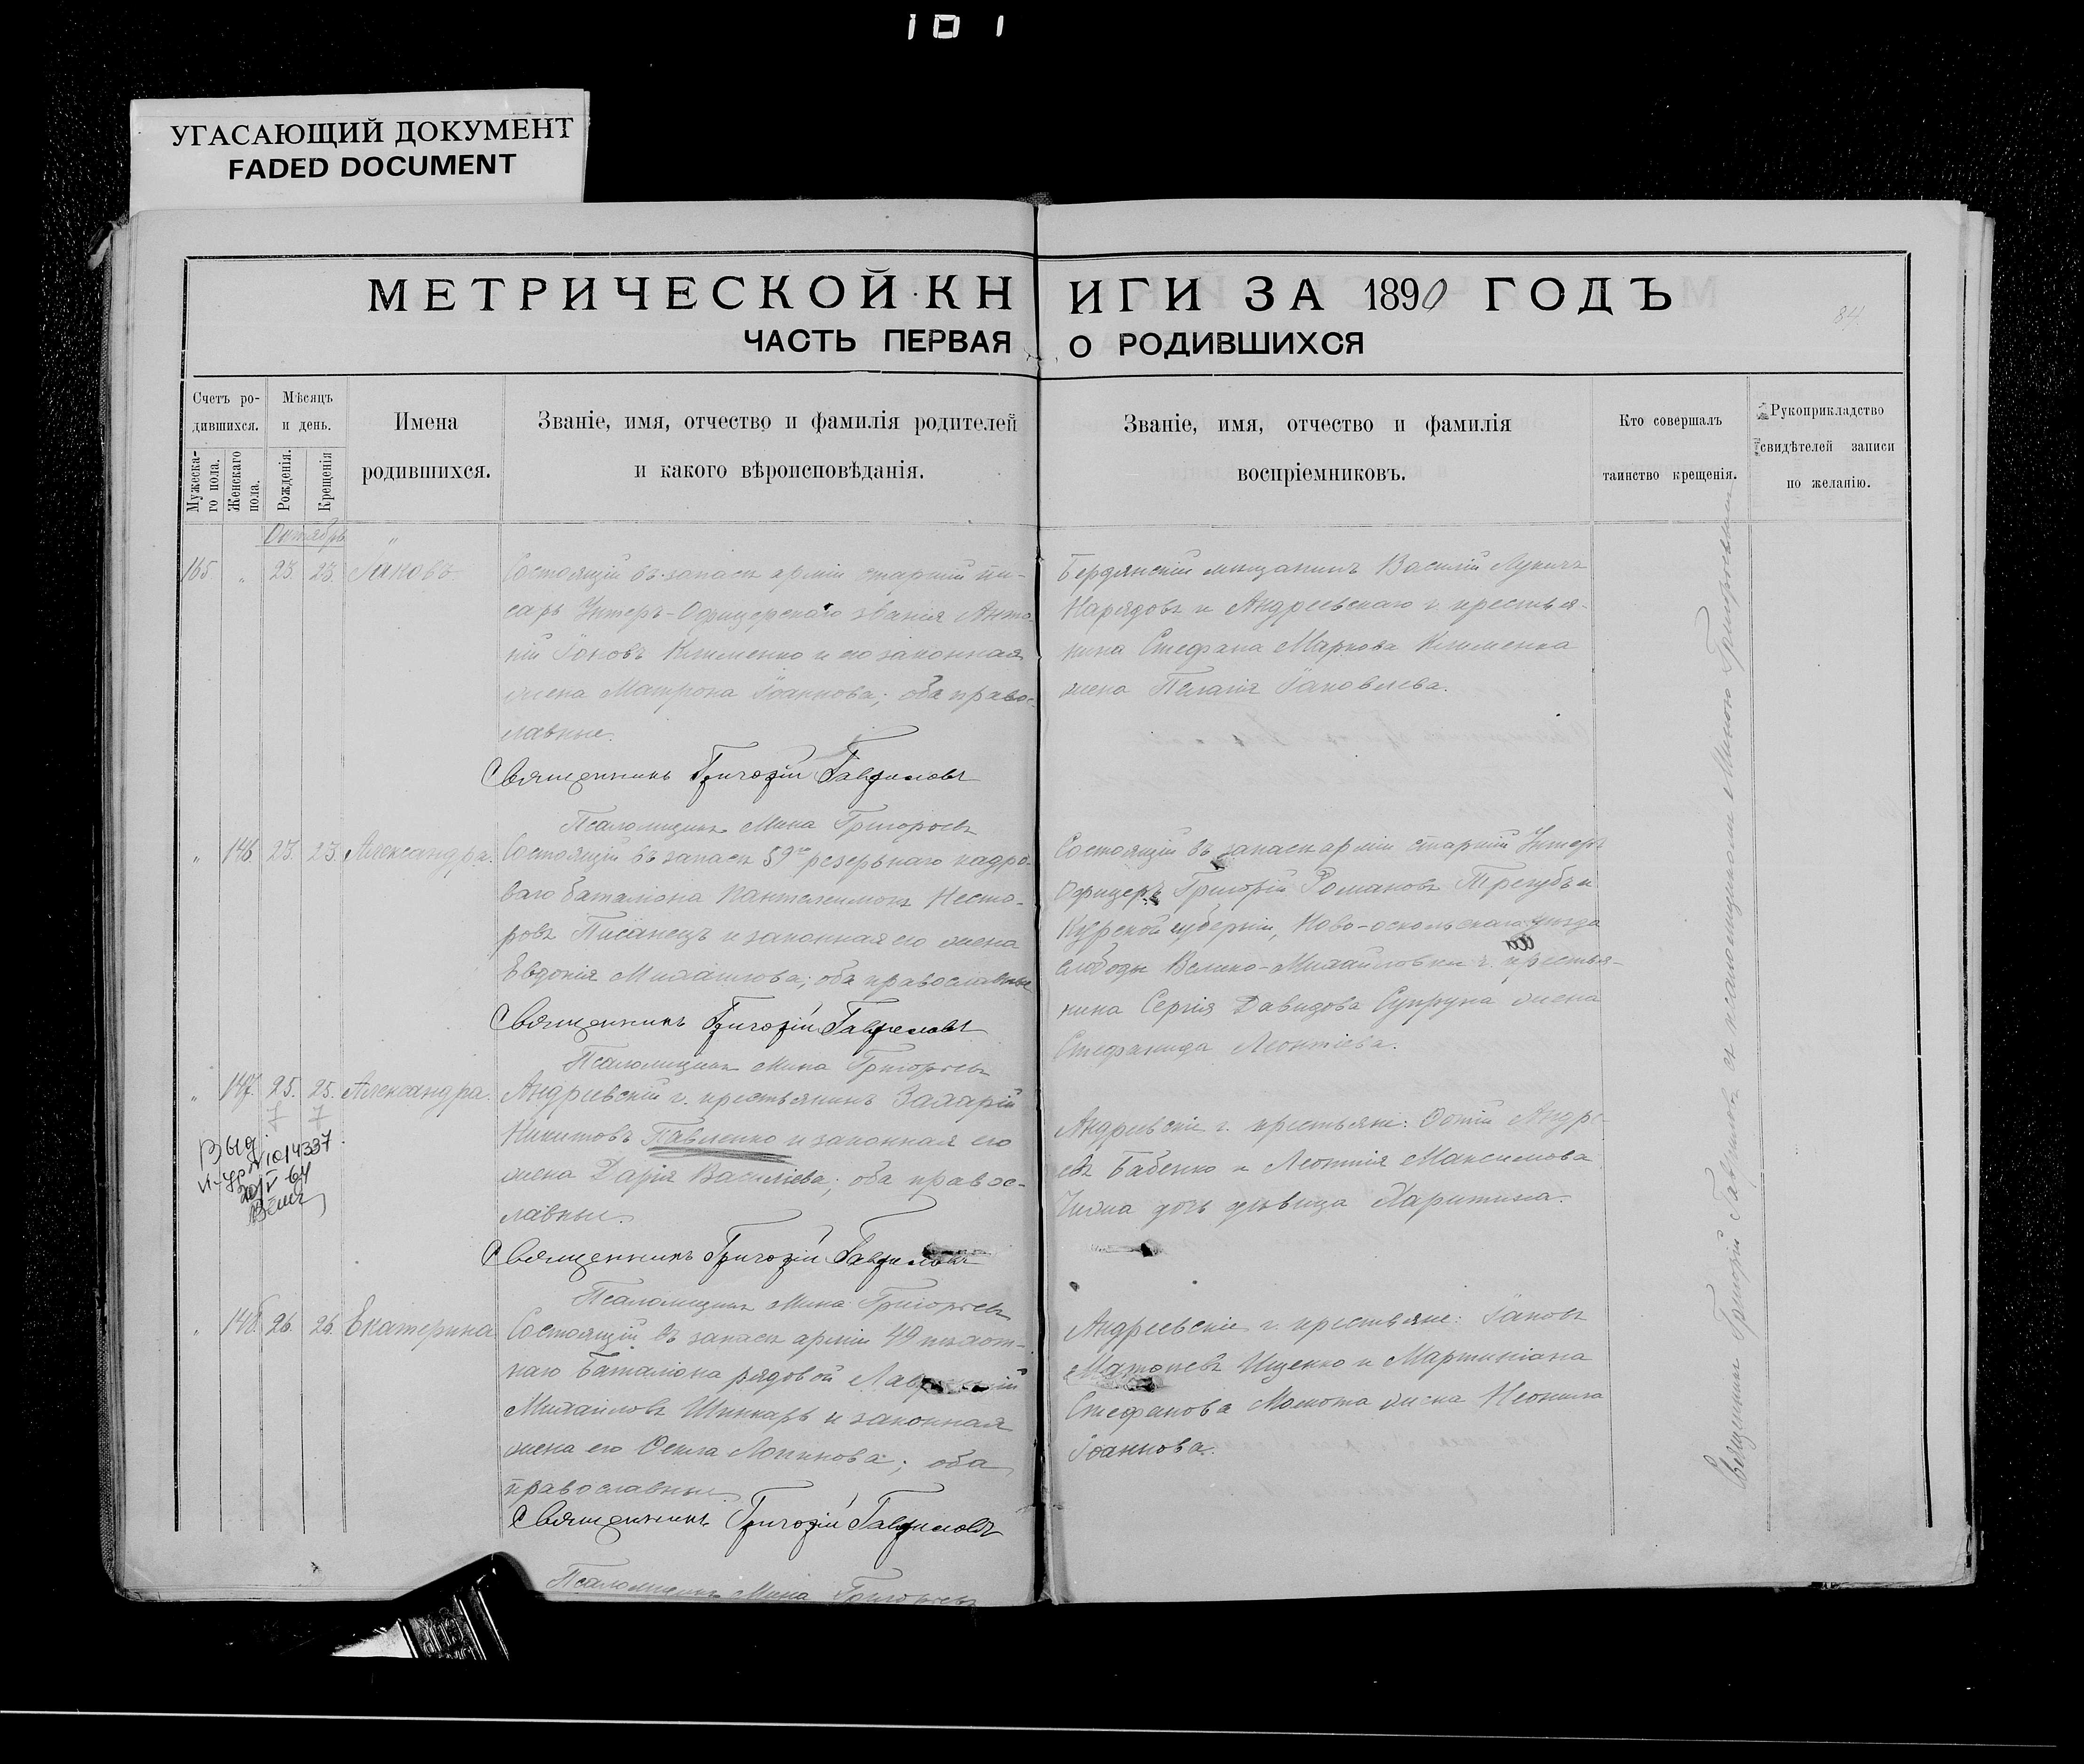 101
УГАСАЮЩИЙ ДОКУМЕНТ
FADED DOCUMENT
МЕТРИЧЕСКОЙ КНИГИ ЗА 1890 ГОДЪ
ЧАСТЬ ПЕРВАЯ О РОДИВШИХСЯ
84
Счетъ ро-
дившихся.
Мужеска-
го пола.
Женскаго
пола.
Мѣсяцъ
и день.
Рожденія.
Крещенія
Имена
родившихся.
Званіе, имя, отчество и фамилія родителей
и какого вѣроисповѣданія.
Званіе, имя, отчество и фамилія
воспріемниковъ.
Кто совершалъ
таинство крещенія.
Рукоприкладство
свидѣтелей записи
по желанію.
Октябрь
165 " 23. 23. Іаковъ
Состоящій въ запасѣ арміи старшій пи-
сарь Унтеръ-Офицерскаго званія Анто-
ній Іаковъ Клименко и его законная
жена Матрона Іоаннова; оба право-
славные.
Священникъ Григорій Гавриловъ
Псаломщикъ Мина Григорьевъ
Бердянскій мѣщанинъ Василій Лукичъ
Нарядовъ и Андреевскаго г. крестья-
нина Стефана Маркова Клименка
жена Пелагія Іаковлева.
" 146. 23. 23. Александра.
Состоящій въ запасѣ 59го резервнаго кадро-
ваго баталіона Пантелеимонъ Несто-
ровъ Писанецъ и законная его жена
Евдокія Михаилова; оба православные
Священникъ Григорій Гавриловъ
Псаломщикъ Мина Григорьевъ
Состоящій въ запасѣ арміи старшій Унтеръ
Офицеръ Григорій Романовъ Трегубъ и
Курской губерніи, Ново-оскольскаго уѣзда
слободы Велико-Михайловки г. крестья-
нина Сергія Давидова Супруна жена
Стефанида Леонтіева.
" 147. 25. 25. Александра.
7 7
Андреевскій г. крестьянинъ Захарій
Никитовъ Павленко и законная его
жена Дарія Василіева; оба правос-
лавные.
Священникъ Григорій Гавриловъ
Псаломщикъ Мина Григорьевъ
Андреевскіе г. крестьяне: Фотій Андре-
евъ Бабенко и Леонтія Максимова
дочь дѣвица Харитина.
Выд.
№1014337
64
" 148. 26. 26. Екатерина
Состоящій въ запасѣ арміи 49 пѣхот-
наго Баталіона рядовой
Михаиловъ Шинкарь и законная
жена его Логинова; оба
православные.
Священникъ Григорій Гавриловъ
Псаломщикъ Мина Григорьевъ
Андреевскіе г. крестьяне: Іаковъ
Ищенко и Мартиніана
Стефанова Момота жена Неонила
Іоаннова.
Священникъ Григорій Гавриловъ съ псаломщикомъ Миною Григорьевымъ